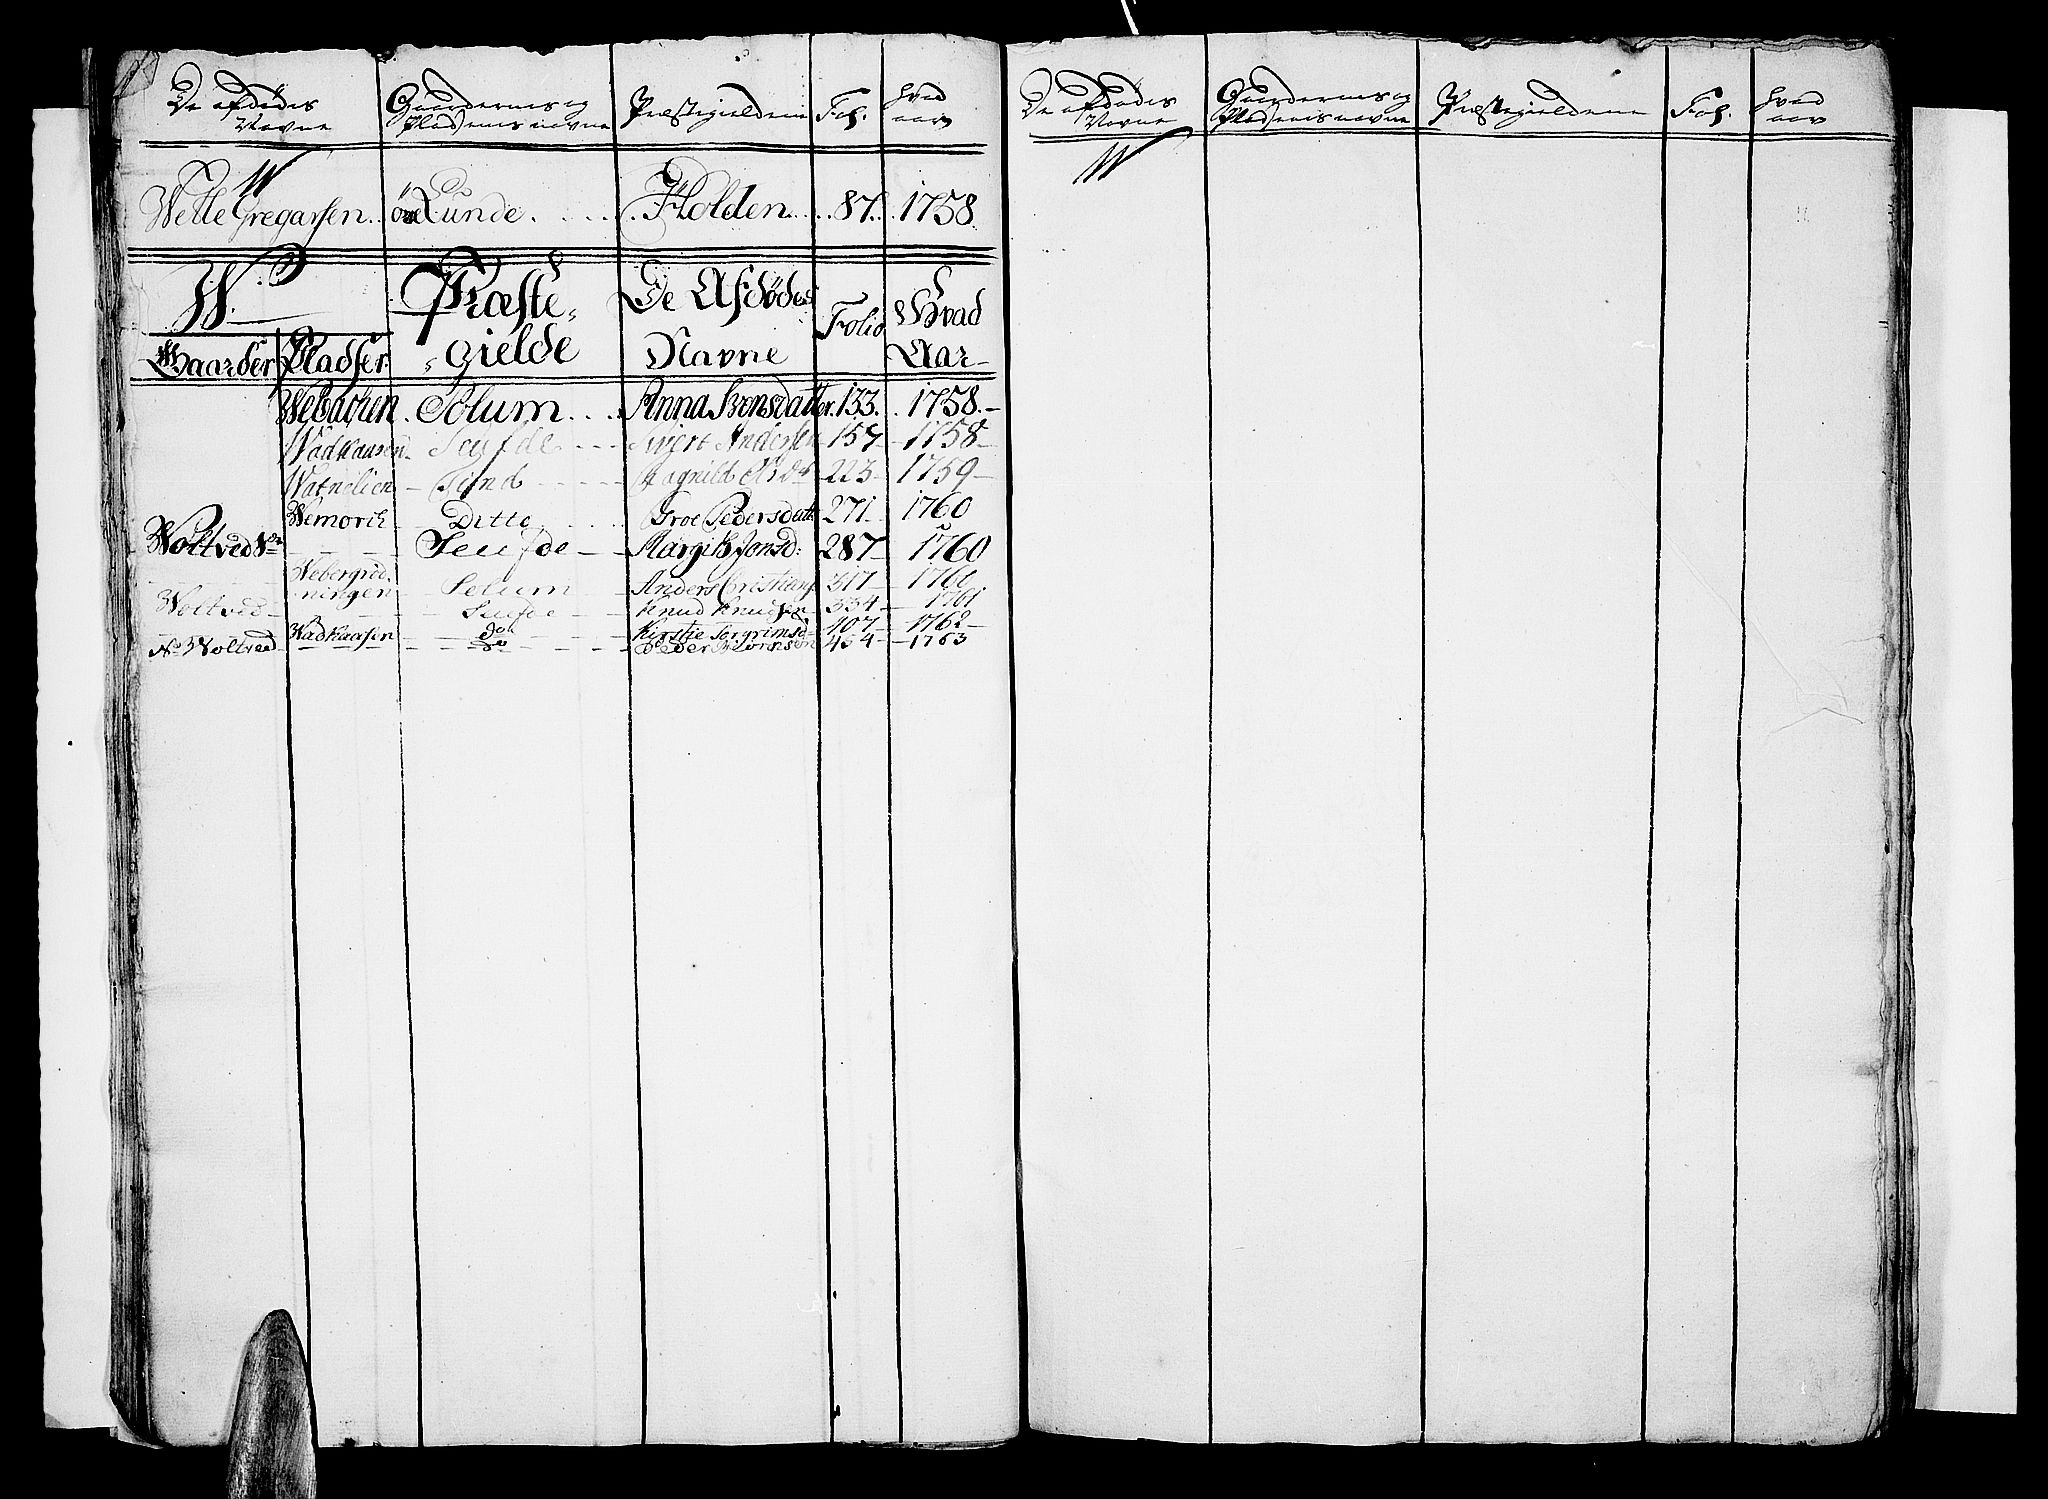 De afdødes Navne | Gaardernes og Pladsernis navne | Præstegieldene | Fol. | hvad aar
W
Wetle Gregarsen | Lunde | Holden | 87 | 1758
W. | Præste-gielde | De Afdødes Navne | Folio | Hvad Aar
Gaarder | Pladser
Webachen | Solum | Anna Svensdatter | 133 | 1758
Wadhausen | Seufde | Sivert Andersen | 157 | 1758
Watnelien | Tind | Ragnild | 223 | 1759
Wemorch | Ditto | Groe Pedersdatt | 271 | 1760
Woltved | Seufde | Margith Jonsd: | 287 | 1760
Webergrød-
ningen | Solum | Anders Cristians | 317 | 1760
Woltvid | Seufde | Knud Knudsen | 334 | 1761
Wadhaasen | do | Kirstie Torgrimsd | 407 | 1762
No Woltved | do | Peder Biörnsøn | 454 | 1763
De afdødes Navne | Gaardernes og Pladsernis navne | Præstegieldene | Fol. | hvad aar
W